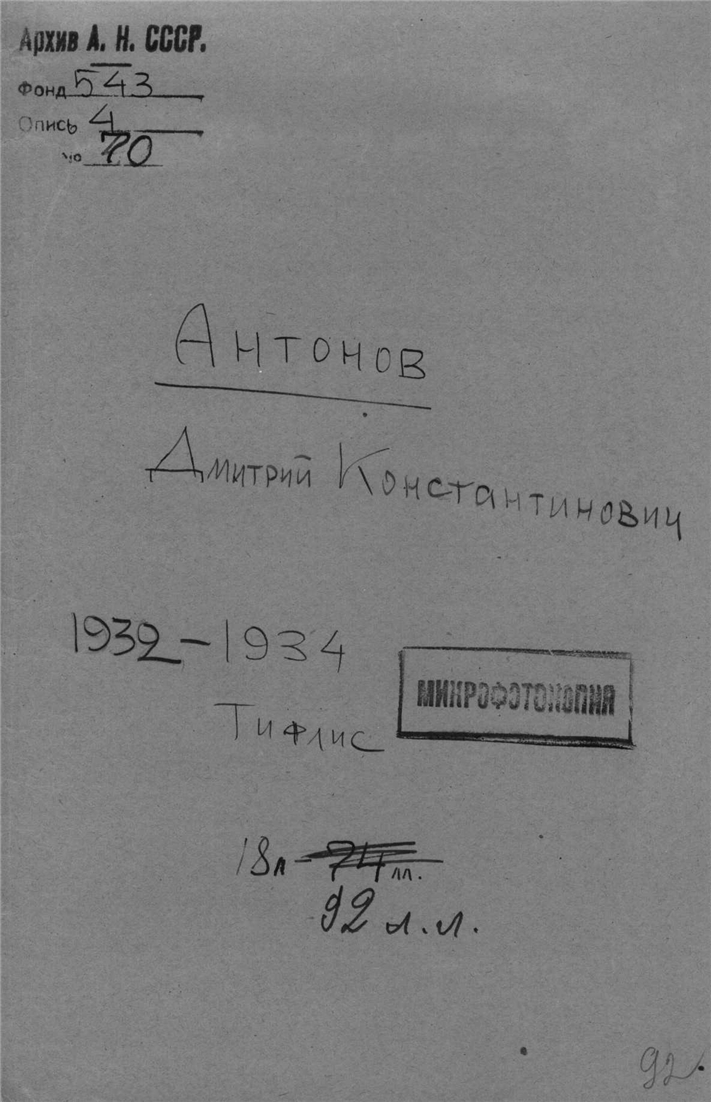 Архив А. Н. СССР.
Фонд 543
Опись 4
№ 70
Антонов
Дмитрий Константинович
1932-1934
Тифлис
МИКРОФОТОКОПИЯ
18л 74 лл.
92 л.л.
92.